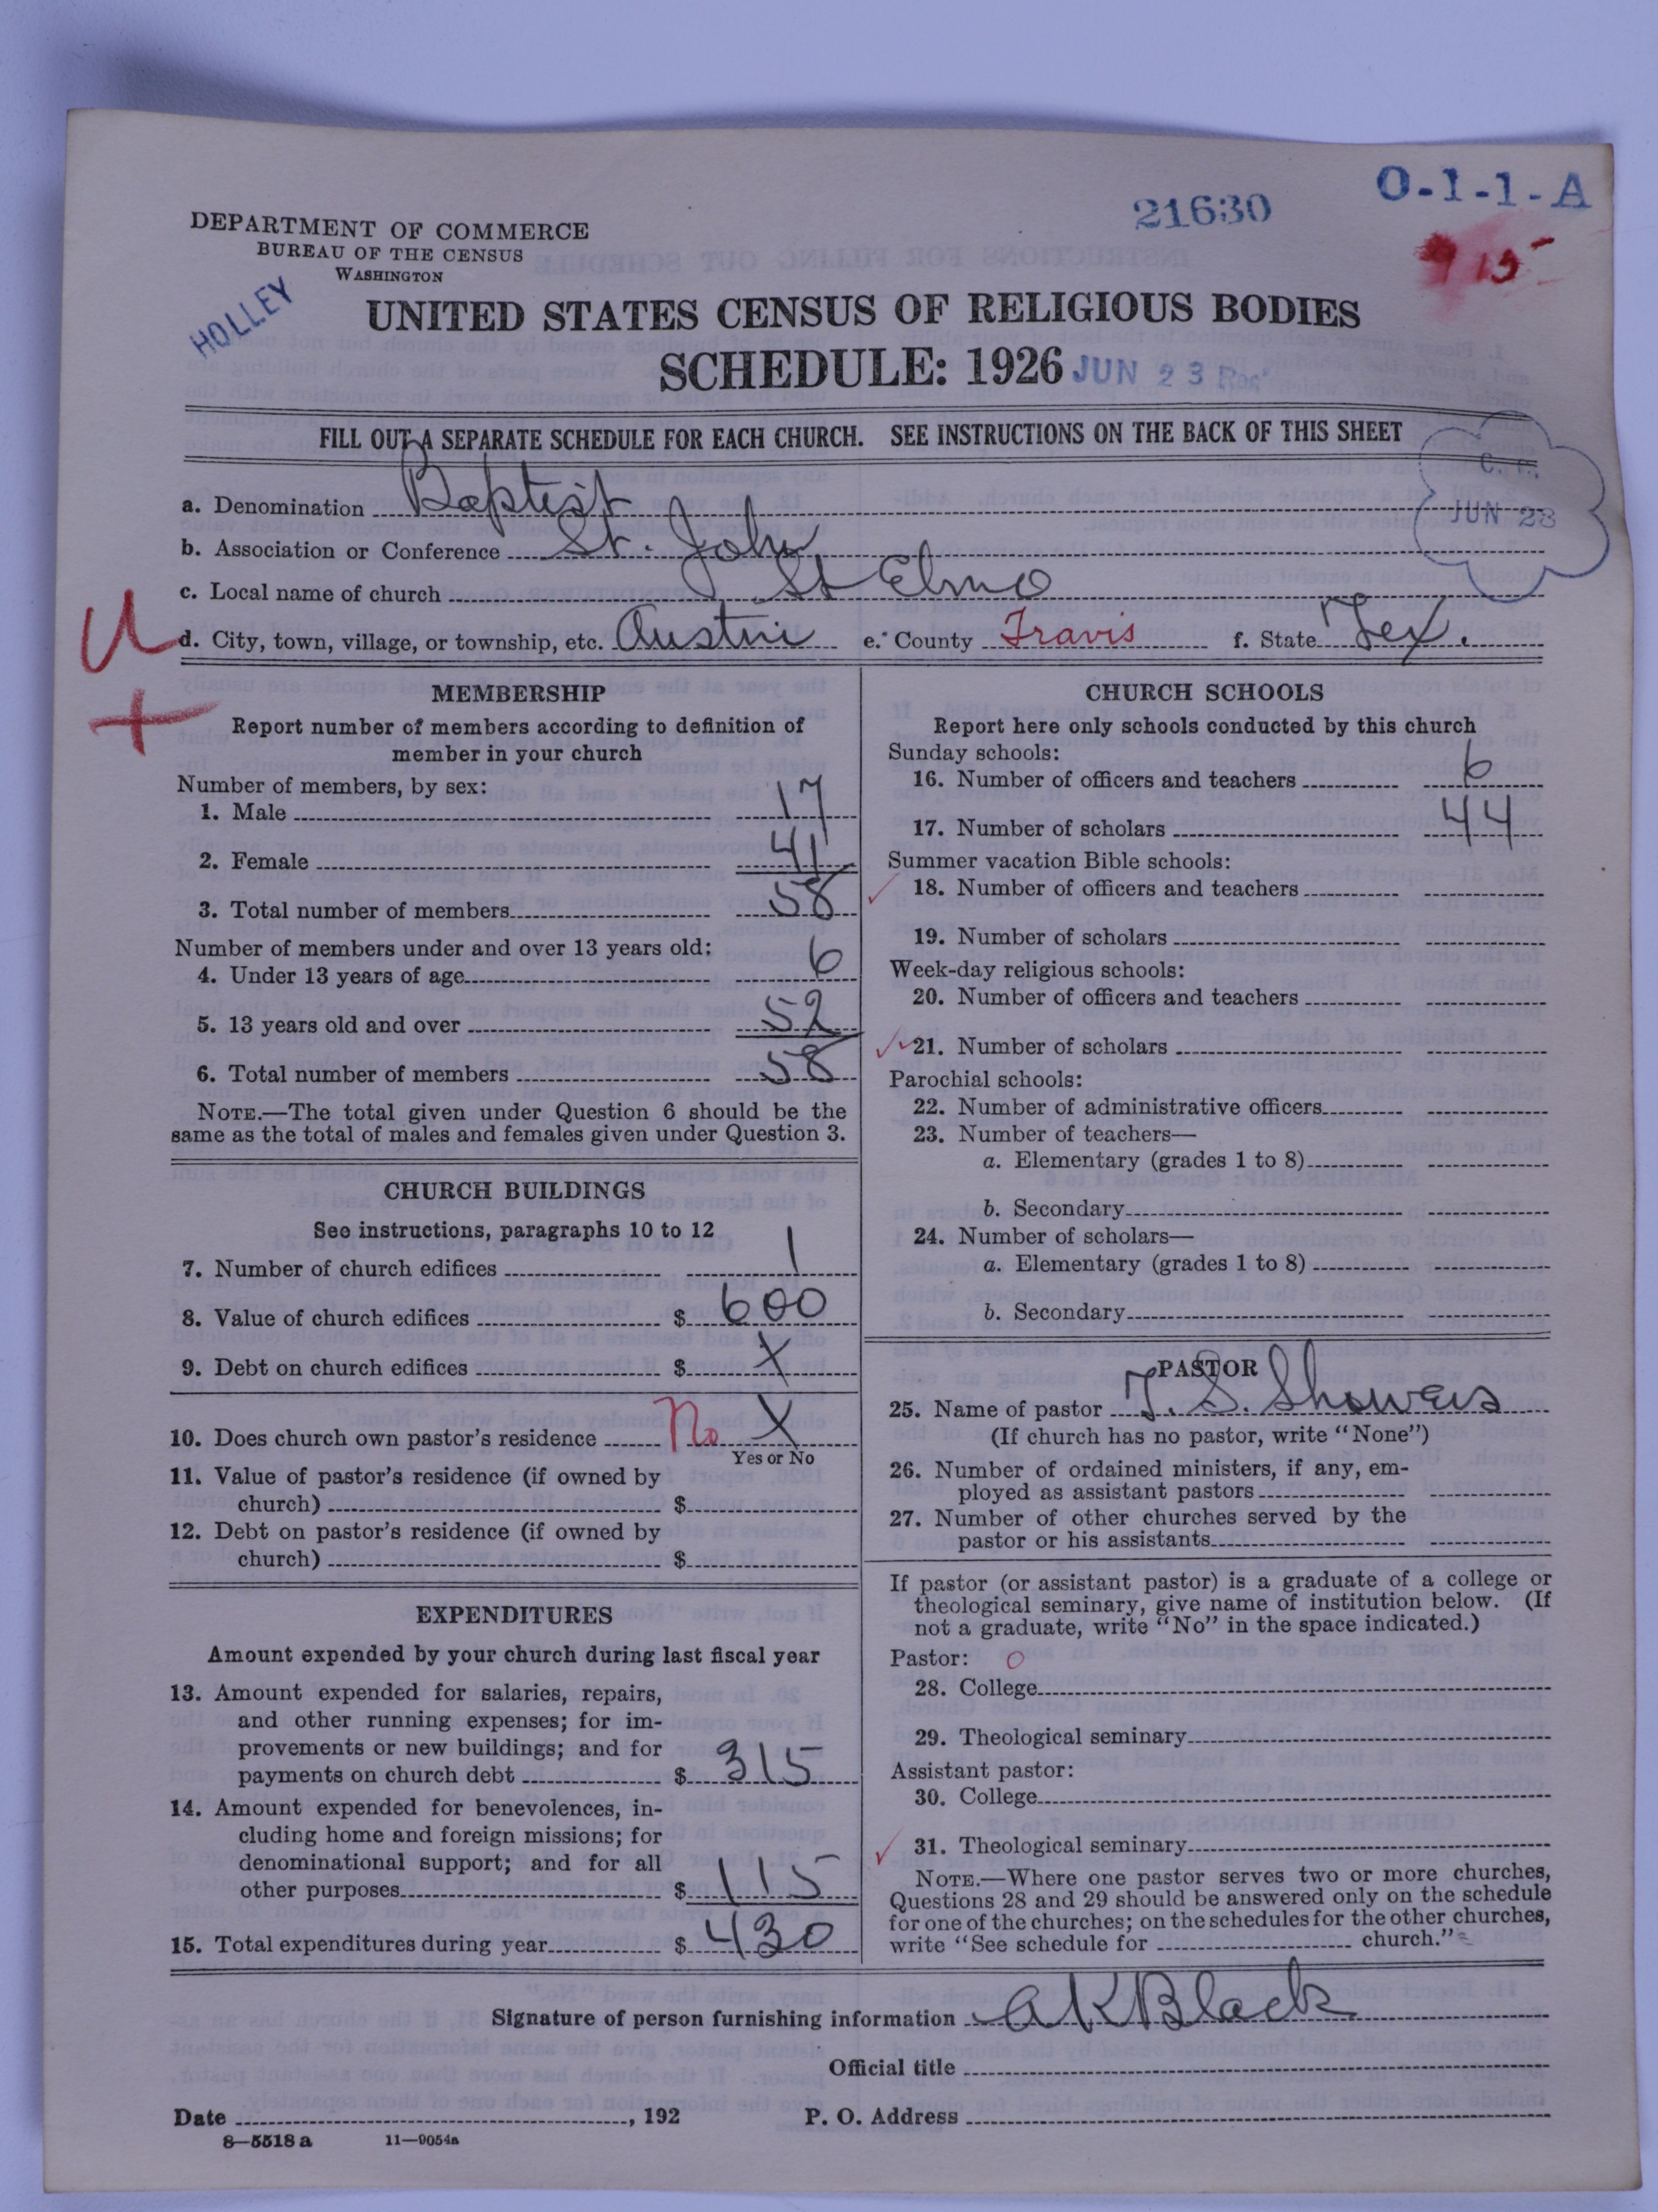 O-1-1-A
21630
915
DEPARTMENT OF COMMERCE
BUREAU OF THE CENSUS
WASHINGTON
HOLLEY
UNITED STATES CENSUS OF RELIGIOUS BODIES
SCHEDULE: 1926 JUN 23 Rec'
FILL OUT A SEPARATE SCHEDULE FOR EACH CHURCH. SEE INSTRUCTIONS ON THE BACK OF THIS SHEET
JUN 23
a. Denomination Baptist
b. Association or Conference St. John
c. Local name of church St Elmo
d. City, town, village, or township, etc. Austin e. County Travis f. State Tex.
U
+
MEMBERSHIP
Report number of members according to definition of
member in your church
Number of members, by sex:
1. Male 17
2. Female 41
3. Total number of members 58
Number of members under and over 13 years old:
4. Under 13 years of age 6
5. 13 years old and over 52
6. Total number of members 58
NOTE.—The total given under Question 6 should be the
same as the total of males and females given under Question 3.
CHURCH BUILDINGS
See instructions, paragraphs 10 to 12
7. Number of church edifices 1
8. Value of church edifices $ 600
9. Debt on church edifices $ X
10. Does church own pastor's residence No X
Yes or No
11. Value of pastor's residence (if owned by
church) $
12. Debt on pastor's residence (if owned by
church) $
EXPENDITURES
Amount expended by your church during last fiscal year
13. Amount expended for salaries, repairs,
and other running expenses; for im-
provements or new buildings; and for
payments on church debt $ 315
14. Amount expended for benevolences, in-
cluding home and foreign missions; for
denominational support; and for all
other purposes $ 115
15. Total expenditures during year $ 430
CHURCH SCHOOLS
Report here only schools conducted by this church
Sunday schools:
16. Number of officers and teachers 6
17. Number of scholars 44
Summer vacation Bible schools:
18. Number of officers and teachers
19. Number of scholars
Week-day religious schools:
20. Number of officers and teachers
21. Number of scholars
Parochial schools:
22. Number of administrative officers
23. Number of teachers—
a. Elementary (grades 1 to 8)
b. Secondary
24. Number of scholars—
a. Elementary (grades 1 to 8)
b. Secondary
PASTOR
25. Name of pastor T. S. Showers
(If church has no pastor, write "None")
26. Number of ordained ministers, if any, em-
ployed as assistant pastors
27. Number of other churches served by the
pastor or his assistants
If pastor (or assistant pastor) is a graduate of a college or
theological seminary, give name of institution below. (If
not a graduate, write "No" in the space indicated.)
Pastor: O
28. College
29. Theological seminary
Assistant pastor:
30. College
31. Theological seminary
NOTE.—Where one pastor serves two or more churches,
Questions 28 and 29 should be answered only on the schedule
for one of the churches; on the schedules for the other churches,
write "See schedule for church."
Signature of person furnishing information A K Black
Official title
Date , 192 P. O. Address
8—5518 a 11—9054a